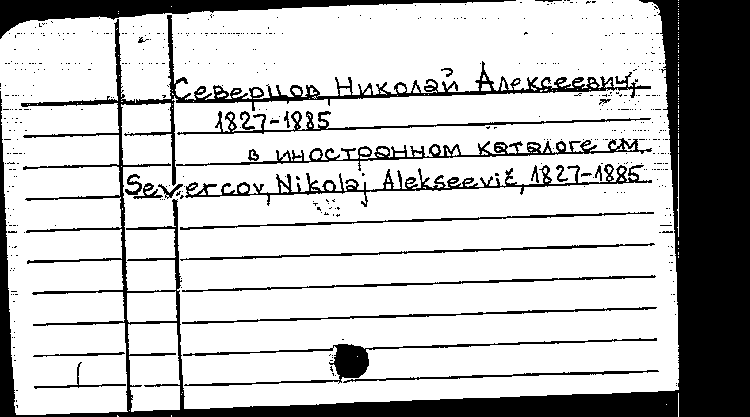 Северцов, Николай Алексеевич,
1827-1885
в иностранном каталоге см.
Severcov, Nikolaj Alekseevič, 1827-1885